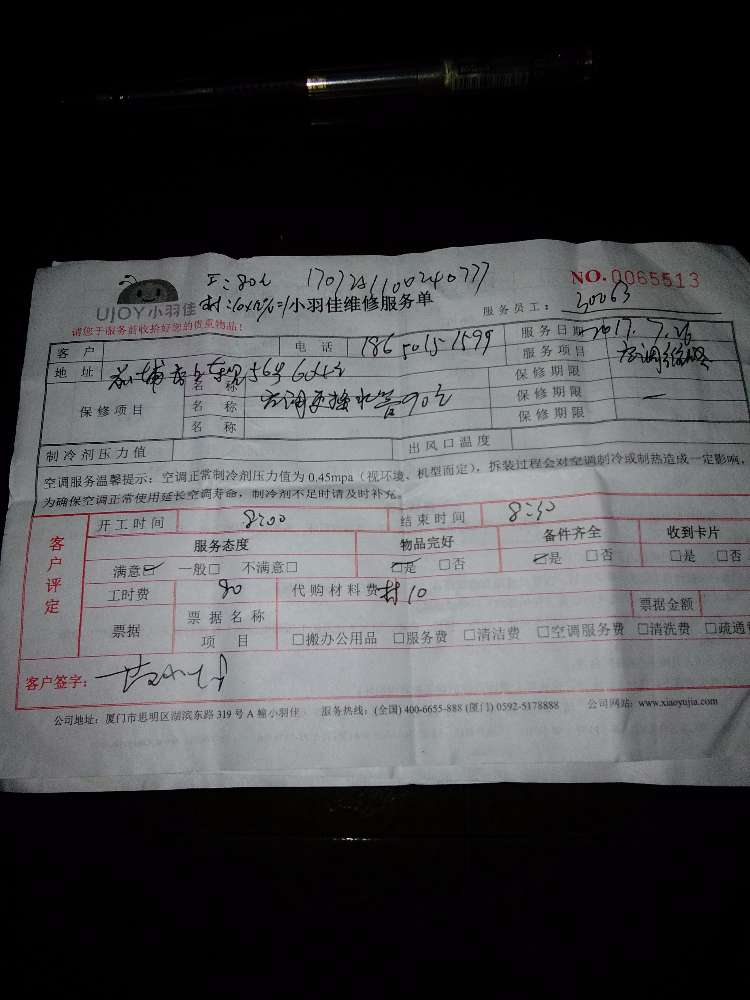 工:80元 1707261100240777
NO.0065513
UJOY小羽佳
小羽佳维修服务单
服务员工: 30063
请您于服务前收拾好您的贵重物品!
客户 电话 18650151599 服务日期 2017.7.26
地址 服务项目 空调维修
保修项目 名称 空调更换水管90元 保修期限
名称 保修期限 —
名称 保修期限
制冷剂压力值 出风口温度
空调服务温馨提示:空调正常制冷剂压力值为 0.45mpa(视环境、机型而定),拆装过程会对空调制冷或制热造成一定影响,
为确保空调正常使用延长空调寿命,制冷剂不足时请及时补充。
客户评定
开工时间 8:00 结束时间
服务态度 物品完好 备件齐全 收到卡片
满意☑ 一般□ 不满意□ ☑是 □否 ☑是 □否 □是 □否
工时费 80 代购材料费 材10
票据 票据名称 票据金额
项目 □搬办公用品 □服务费 □清洁费 □空调服务费 □清洗费 □疏通费
客户签字:
公司地址:厦门市思明区湖滨东路 319 号 A 幢小羽佳 服务热线:(全国) 400-6655-888 (厦门) 0592-5178888 公司网站:www.xiaoyujia.com